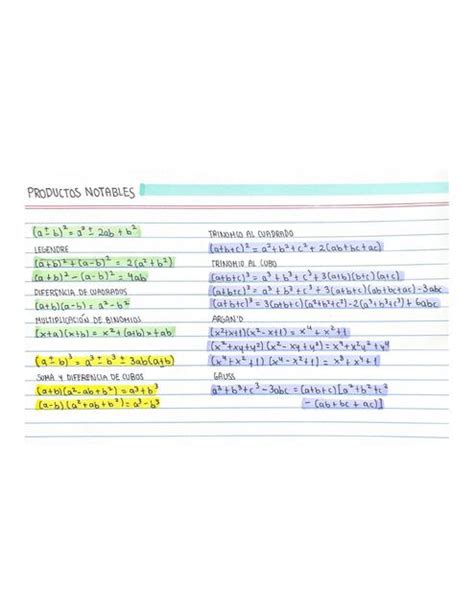 PRODUCTOS NOTABLES
(a ± b)² = a² ± 2ab + b²
LEGENDRE
(a+b)² + (a-b)² = 2(a²+b²)
(a+b)² - (a-b)² = 4ab
DIFERENCIA DE CUADRADOS
(a+b)(a-b) = a² - b²
MULTIPLICACIÓN DE BINOMIOS
(x+a)(x+b) = x² + (a+b)x + ab
(a ± b)³ = a³ ± b³ ± 3ab(a±b)
SUMA Y DIFERENCIA DE CUBOS
(a+b)(a²-ab+b²) = a³+b³
(a-b)(a²+ab+b²) = a³-b³
TRINOMIO AL CUADRADO
(a+b+c)² = a²+b²+c² + 2(ab+bc+ac)
TRINOMIO AL CUBO
(a+b+c)³ = a³ + b³ + c³ + 3(a+b)(b+c)(a+c)
(a+b+c)³ = a³ + b³ + c³ + 3(a+b+c)(ab+bc+ac) - 3abc
(a+b+c)³ = 3(a+b+c)(a²+b²+c²) - 2(a³+b³+c³) + 6abc
ARGAN'D
(x²+x+1)(x²-x+1) = x⁴ + x²+1
(x²+xy+y²)(x²-xy+y²) = x⁴+x²y²+y⁴
(x⁴+x²+1)(x⁴-x²+1) = x⁸+x⁴+1
GAUSS
a³+b³+c³ - 3abc = (a+b+c)[a²+b²+c²
- (ab+bc+ac)]